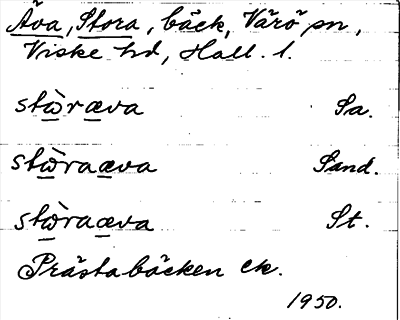 Äva, Stora, bäck, Värö sn,
Viske hd, Hall. l.
stὼræva Sa.
stὼraæva Sand.
stὼraæva St.
Prästabäcken ek.
1950.